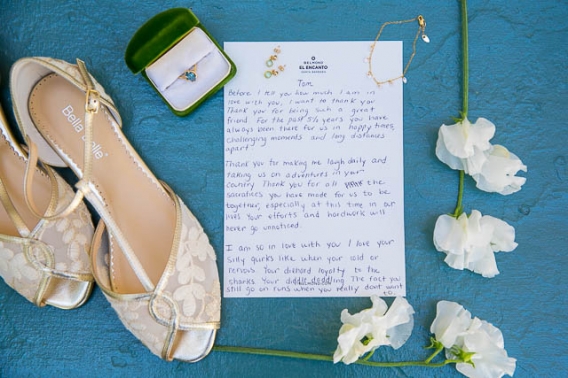 Bella Belle
BELMOND
EL ENCANTO
SANTA BARBARA
Tom,
Before I tell you how much I am in
love with you, I want to thank you
Thank you for being such a great
friend. For the past 5½ years you have
always been there for us in happy times,
challenging moments and long distances
apart.
Thank you for making me laugh daily and
taking us on adventures in your
country. Thank you for all the
sacrafices you have made for us to be
together, especially at this time in our
lives. Your efforts and hardwork will
never go unnoticed.
I am so in love with you. I love your
silly quirks like when your cold or
nervous. Your diehard loyalty to the
The fact you
still go on runs when you really dont want
to